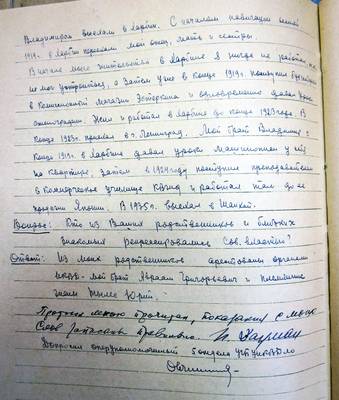 Владимиром выехали в Харбин. С началом навигации
1919г. в Харбин переехали мои отец, мать и сестры.
В начале моего жительства в Харбине я нигде не работал, т.к.
не мог устроиться, а затем уже в конце 1919г. поступил
в комиссионный магазин и одновременно давал уроки
стенографии. Жил и работал в Харбине до конца 1923 года. В
конце 1923г. приехал в г. Ленинград. Мой брат Владимир с
конца 1919г. в Харбине давал уроки машинописи у нас
на квартире, затем в 1924 году поступил преподавателем
в коммерческое училище КВжд и работал там до ее
продажи Японии. В 1935г. выехал в Шанхай.
Вопрос: Кто из Ваших родственников и близких
знакомых репрессировались Сов. властью?
Ответ: Из моих родственников арестованы органами
НКВД мой брат Абрам Григорьевич и
Протокол мною прочитан, показания с моих
слов записаны правильно.
Допросил оперуполномоченный 5 отдела УГБ УНКВД ЛО